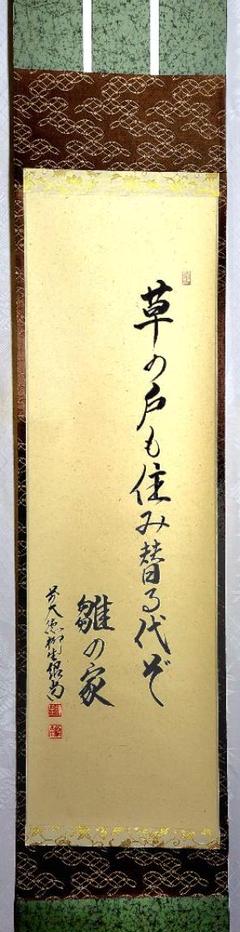 草の戸も住み替る代ぞ
雛の家